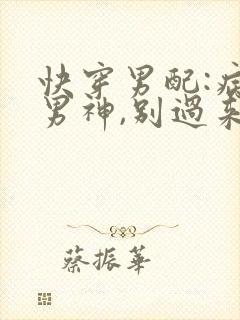 快穿男配:病
男神,别過来
蔡振華